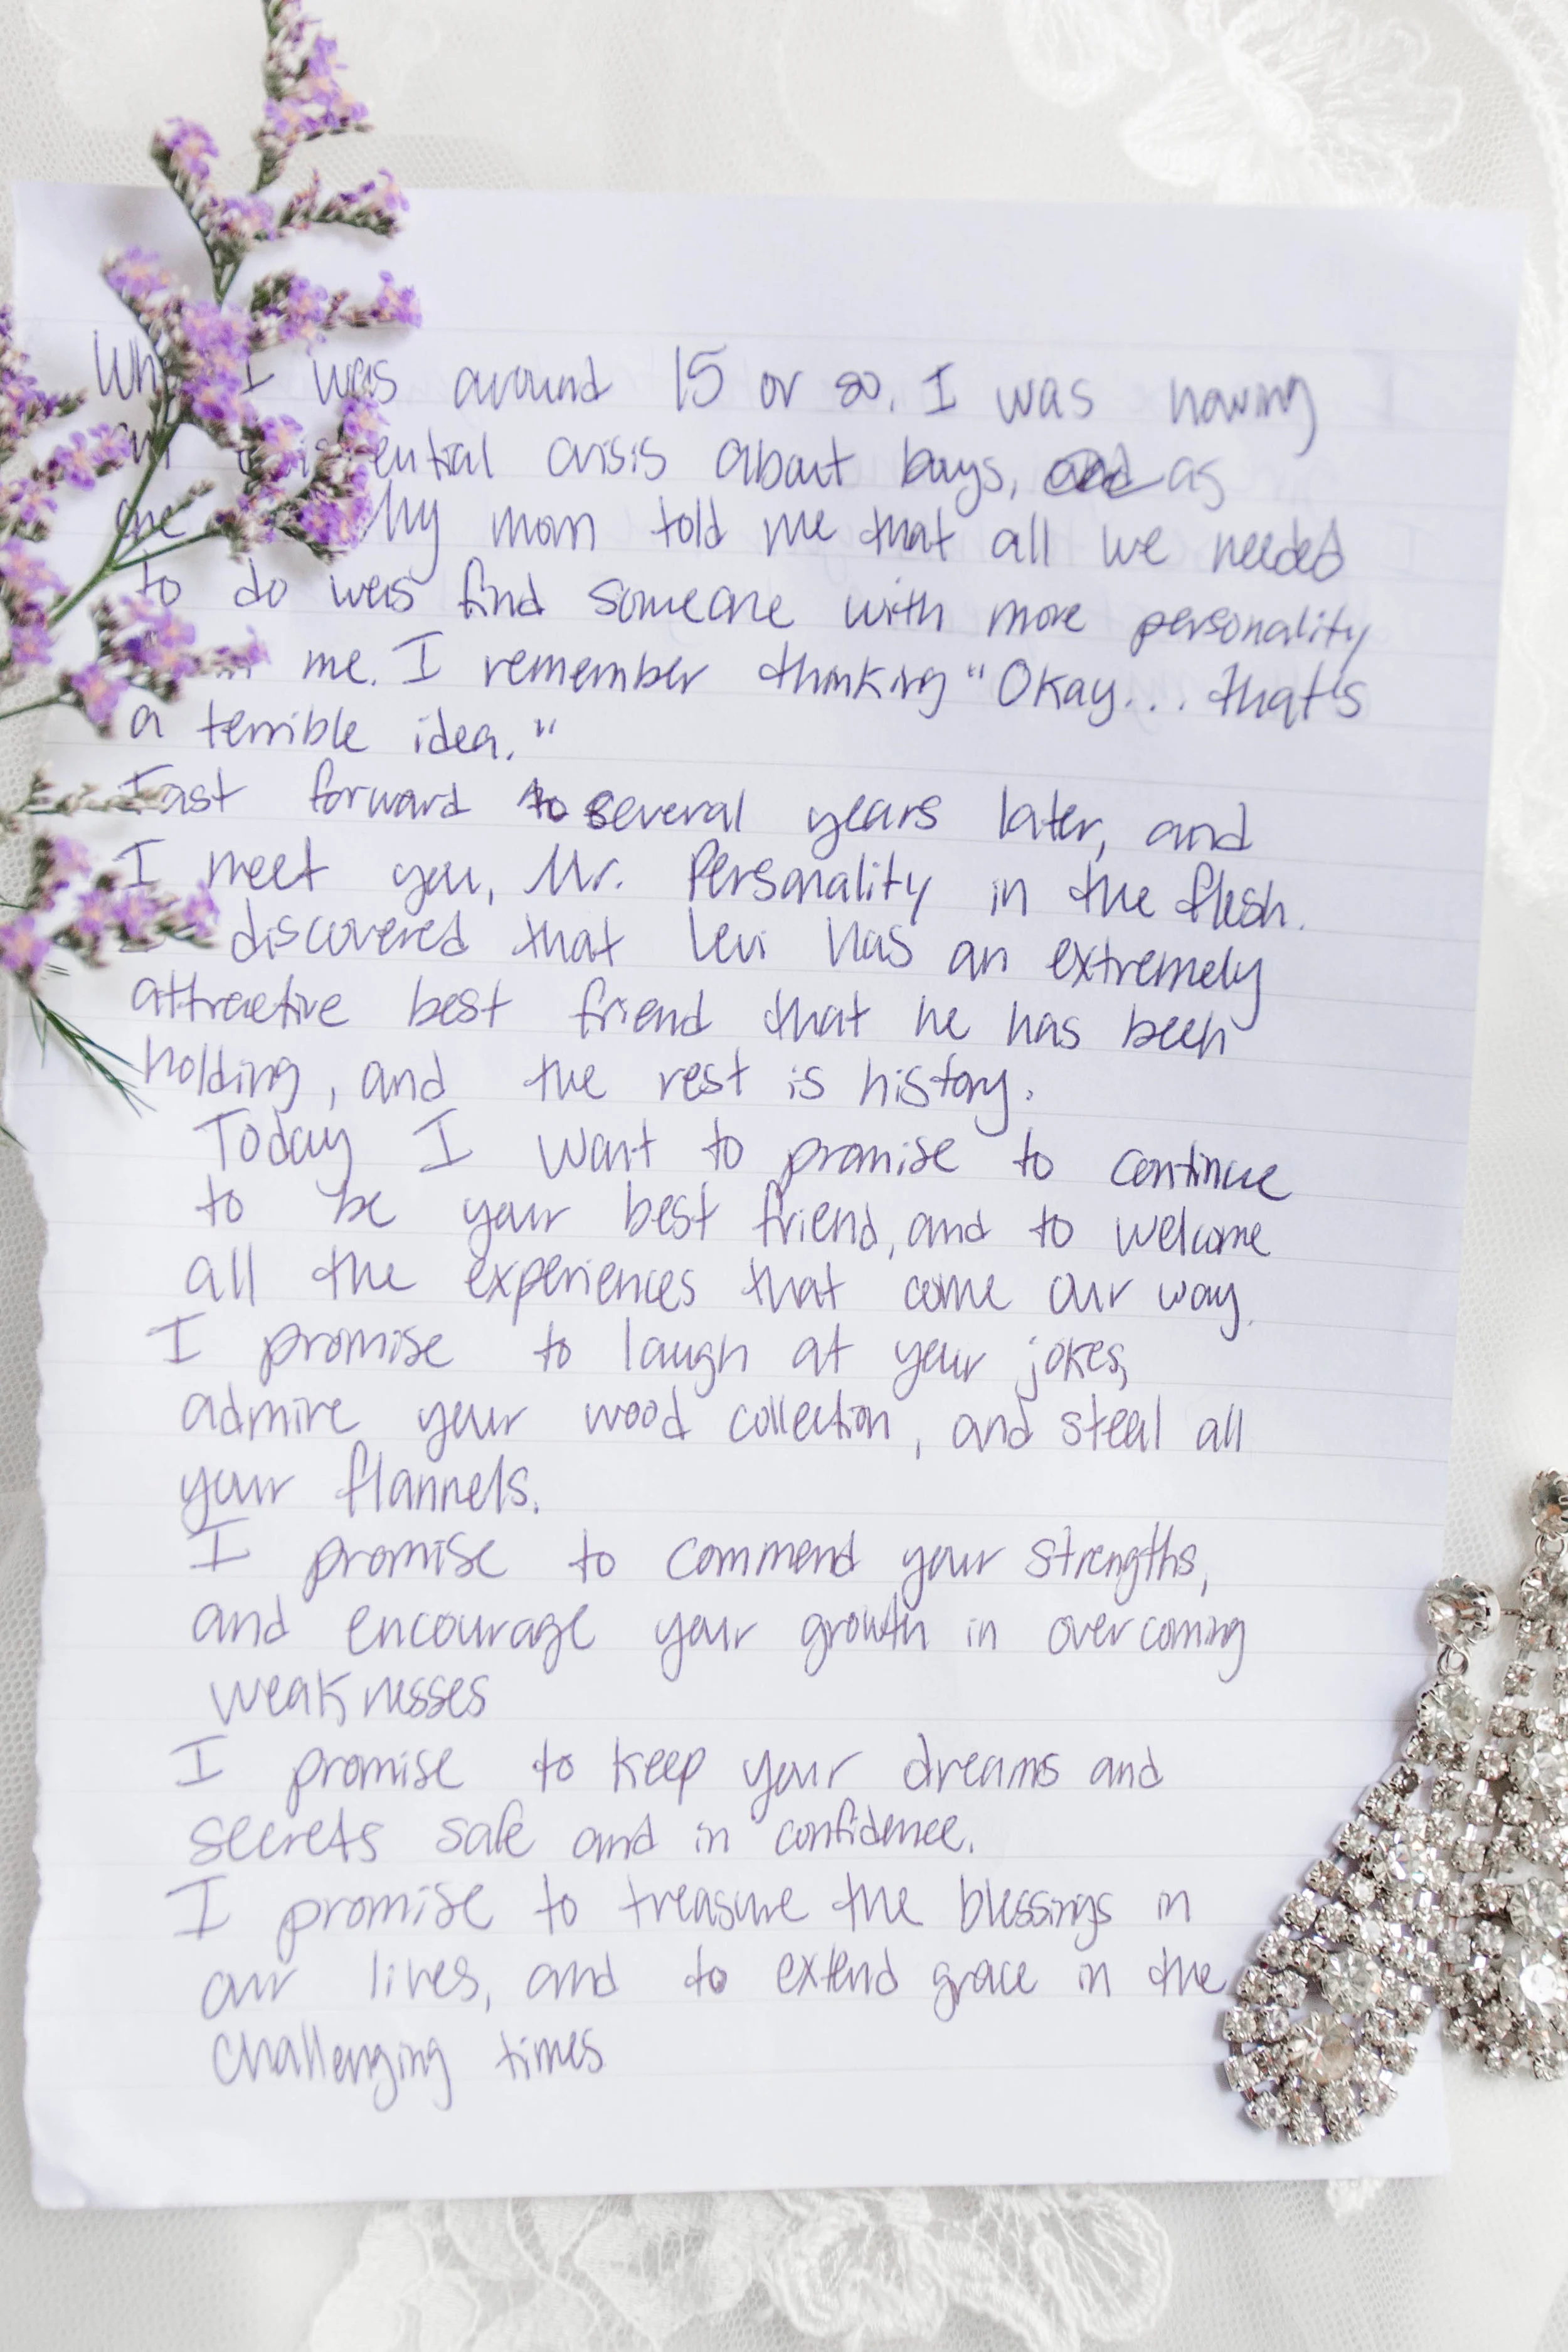 I was around 15 or so, I was having
crisis about boys, as
My mom told me that all we needed
to do was find someone with more personality
me. I remember thinking "Okay... that's
a terrible idea."
Fast forward to several years later, and
I meet you, Mr. Personality in the flesh.
I discovered that Levi has an extremely
attractive best friend that he has been
holding, and the rest is history.
Today I want to promise to continue
to be your best friend, and to welcome
all the experiences that come our way.
I promise to laugh at your jokes,
admire your wood collection, and steal all
your flannels.
I promise to commend your strengths,
and encourage your growth in overcoming
weaknesses
I promise to keep your dreams and
secrets safe and in confidence.
I promise to treasure the blessings in
our lives, and to extend grace in the
challenging times